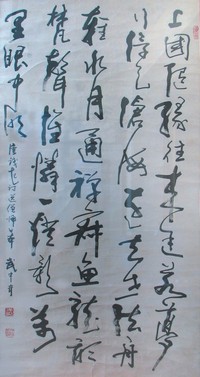 上國隨緣住來途若夢
行浮天滄海遠去世法舟
輕水月通禪寂魚龍聽
梵聲惟憐一燈影萬
里眼中明